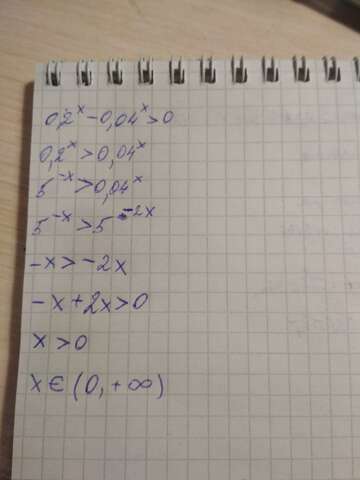 0,2ˣ-0,04ˣ>0
0,2ˣ>0,04ˣ
5⁻ˣ>0,04ˣ
5⁻ˣ>5⁻²ˣ
-x>-2x
-x+2x>0
x>0
x∈(0,+∞)